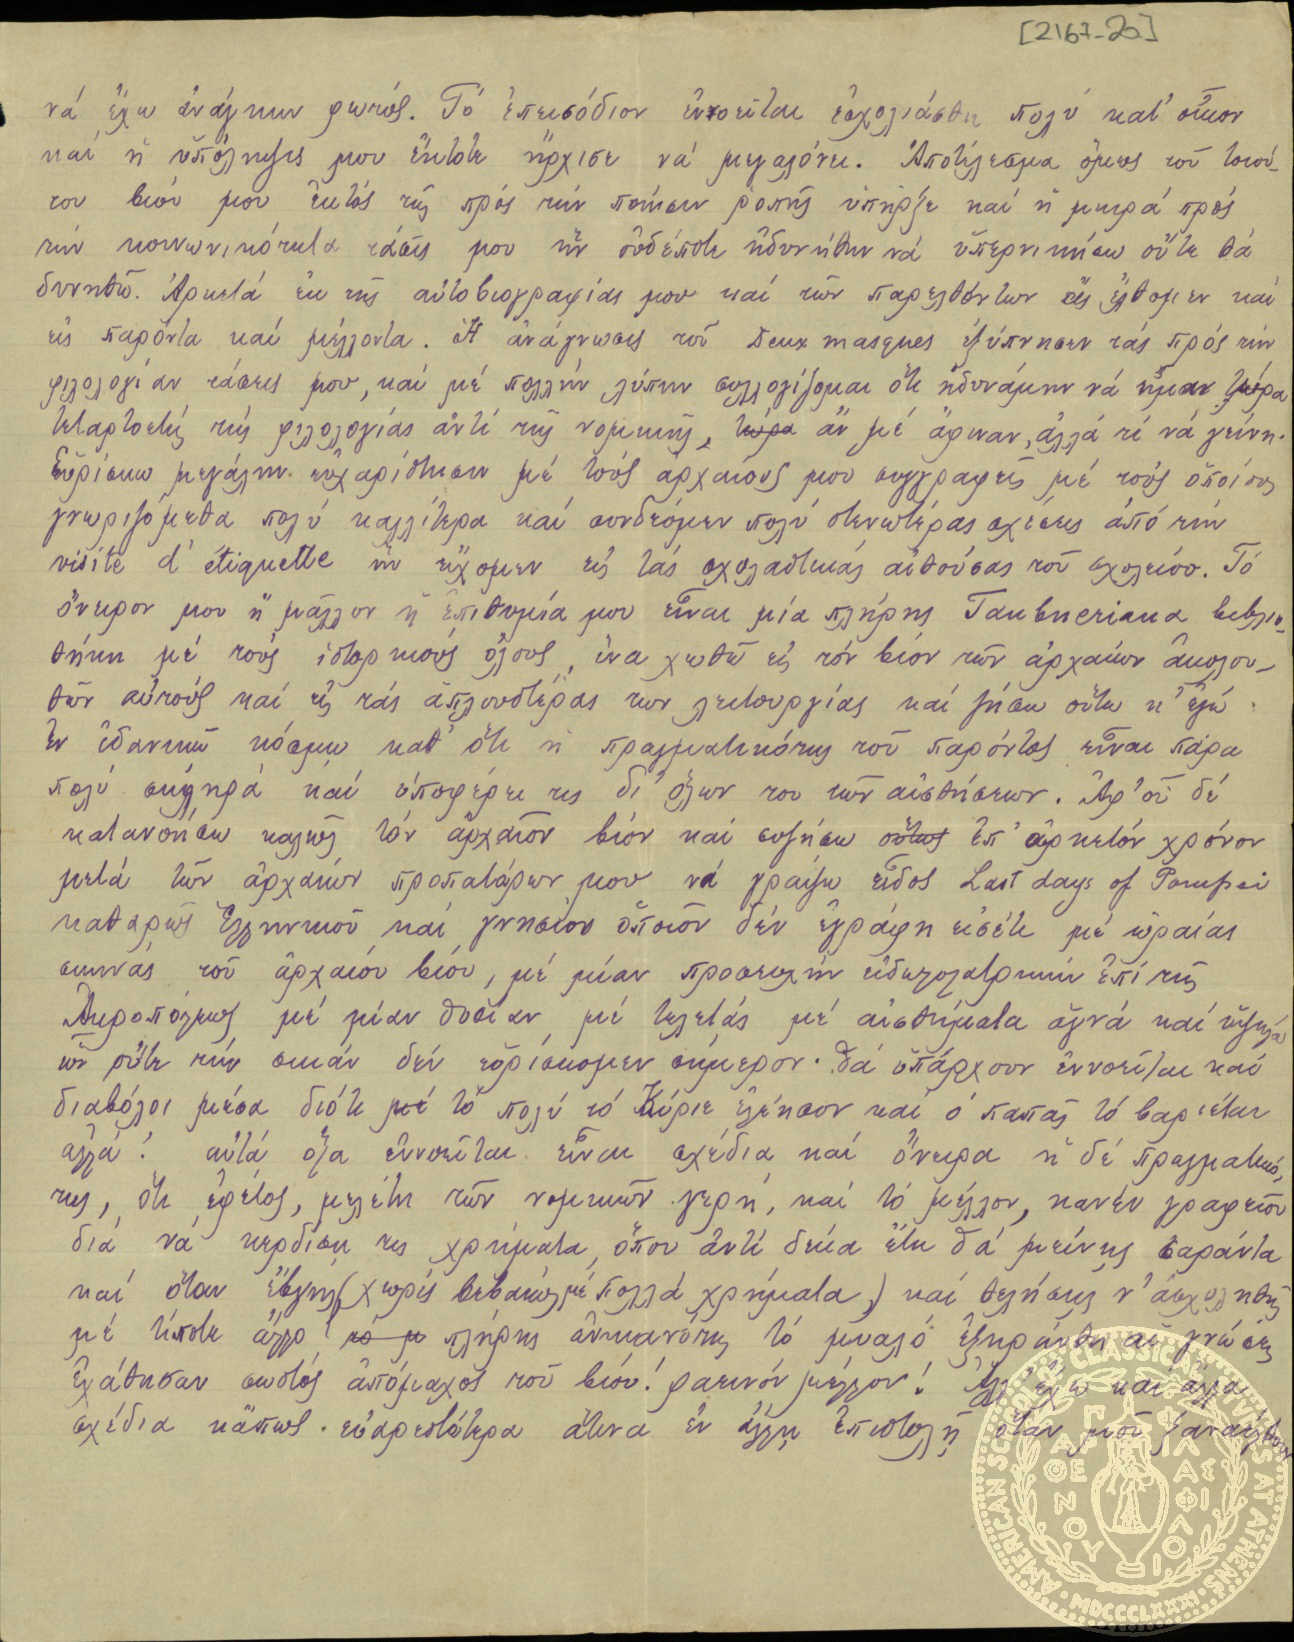 [2167-2α]
νά ἔχω ἀνάγκην φωτός. Τό ἐπεισόδιον ἐννοεῖται ἐσχολιάσθη πολύ κατ' οἶκον
καί ἡ ὑπόληψίς μου ἔκτοτε ἤρχισε νά μεγαλόνει. Ἀποτέλεσμα ὅμως τοῦ τοιού-
του βίου μου ἐκτός τῆς πρός τήν ποίησιν ῥοπῆς ὑπῆρξε καί ἡ μικρά πρός
τήν κοινωνικότητα τάσις μου ἥν οὐδέποτε ἠδυνήθην νά ὑπερνικήσω οὔτε θά
δυνηθῶ. Ἀρκετά ἐκ τῆς αὐτοβιογραφίας μου καί τῶν παρελθόντων ἄς ἔλθομεν καί
εἰς παρόντα καί μέλλοντα. Ἡ ἀνάγνωσις τοῦ Deux masques ἐξύπνησεν τάς πρός τήν
φιλολογίαν τάσεις μου, καί μέ πολλήν λύπην συλλογίζομαι ὅτι ἠδυνάμην νά ἤμαν τώρα
τεταρτοετής τῆς φιλολογίας ἀντί τῆς νομικῆς, τώρα ἄν μέ ἄφιναν, ἀλλά τί νά γείνῃ.
Εὑρίσκω μεγάλην εὐχαρίστησιν μέ τούς ἀρχαίους μου συγγραφεῖς μέ τούς ὁποίους
γνωριζόμεθα πολύ καλλίτερα καί συνδεόμεν πολύ στενωτέρας σχέσεις ἀπό τήν
visite d'étiquette ἥν εἴχομεν εἰς τάς σχολαστικάς αἰθούσας τοῦ σχολείου. Τό
ὄνειρον μου ἤ μᾶλλον ἡ ἐπιθυμία μου εἶναι μία πλήρης Taubneriana βιβλιο-
θήκη μέ τούς ἱστορικούς ὅλους, ἵνα χωθῶ εἰς τόν βίον τῶν ἀρχαίων ἀκολου-
θῶν αὐτούς καί εἰς τάς ἁπλουστέρας των λειτουργίας καί ζήσω οὕτω κ' ἐγώ
ἐν ἰδανικῷ κόσμῳ καθ' ὅτι ἡ πραγματικότης τοῦ παρόντος εἶναι πάρα
πολύ σκληρά καί ὑποφέρει τις δι' ὅλων του τῶν αἰσθήσεων. Ἀφ' οὗ δέ
κατανοήσω καλῶς τόν ἀρχαῖον βίον καί συζήσω οὕτως ἐπ' ἀρκετόν χρόνον
μετά τῶν ἀρχαίων προπατόρων μου νά γράψω εἶδος Last days of Pompei
καθαρῶς Ἑλληνικοῦ καί γνησίου ὁποῖον δέν ἐγράφη εἰσέτι μέ ὡραίας
σκηνάς τοῦ ἀρχαίου βίου, μέ μίαν προσευχήν εἰδωλολατρικήν ἐπί τῆς
Ἀκροπόλεως μέ μίαν θυσίαν μέ τελετάς μέ αἰσθήματα ἁγνά καί ὑψηλά
ὧν οὔτε τήν σκιάν δέν εὑρίσκομεν σήμερον. Θά ὑπάρχουν ἐννοεῖται καί
διαβόλοι μέσα διότι μέ τό πολύ τό Κύριε ἐλέησον καί ὁ παπᾶς τό βαριέται
ἀλλά! αὐτά ὅλα ἐννοεῖται εἶναι σχέδια καί ὄνειρα ἡ δέ πραγματικό-
της, ὅτι ἐφέτος, μελέτη τῶν νομικῶν γερή, καί τό μέλλον, κανέν γραφεῖον
διά νά κερδίσῃ τις χρήματα, ὅπου ἀντί δέκα ἔτη θά μείνῃς σαράντα
καί ὅταν ἔβγῃς (χωρίς βεβαίως μέ πολλά χρήματα,) καί θελήσῃς ν' ἀσχοληθῇς
μέ τίποτε ἄλλο! τό μ πλήρης ἀνικανότης τό μυαλό ἐξηράνθη αἱ γνώσεις
ἐχάθησαν σωστός ἀπόμαχος τοῦ βίου! φαεινόν μέλλον! Ἀλλ' ἔχω καί ἄλλα
σχέδια κάπως εὐαρεστότερα ἅτινα ἐν ἄλλῃ ἐπιστολῇ ὅταν μοῦ ξαναέλθουν
AMERICAN SCHOOL OF CLASSICAL STUDIES AT ATHENS · MDCCCLXXXI
ΠΑΡΘΕΝΟΥ ΦΙΛΑΣ ΦΙΛΟΙ